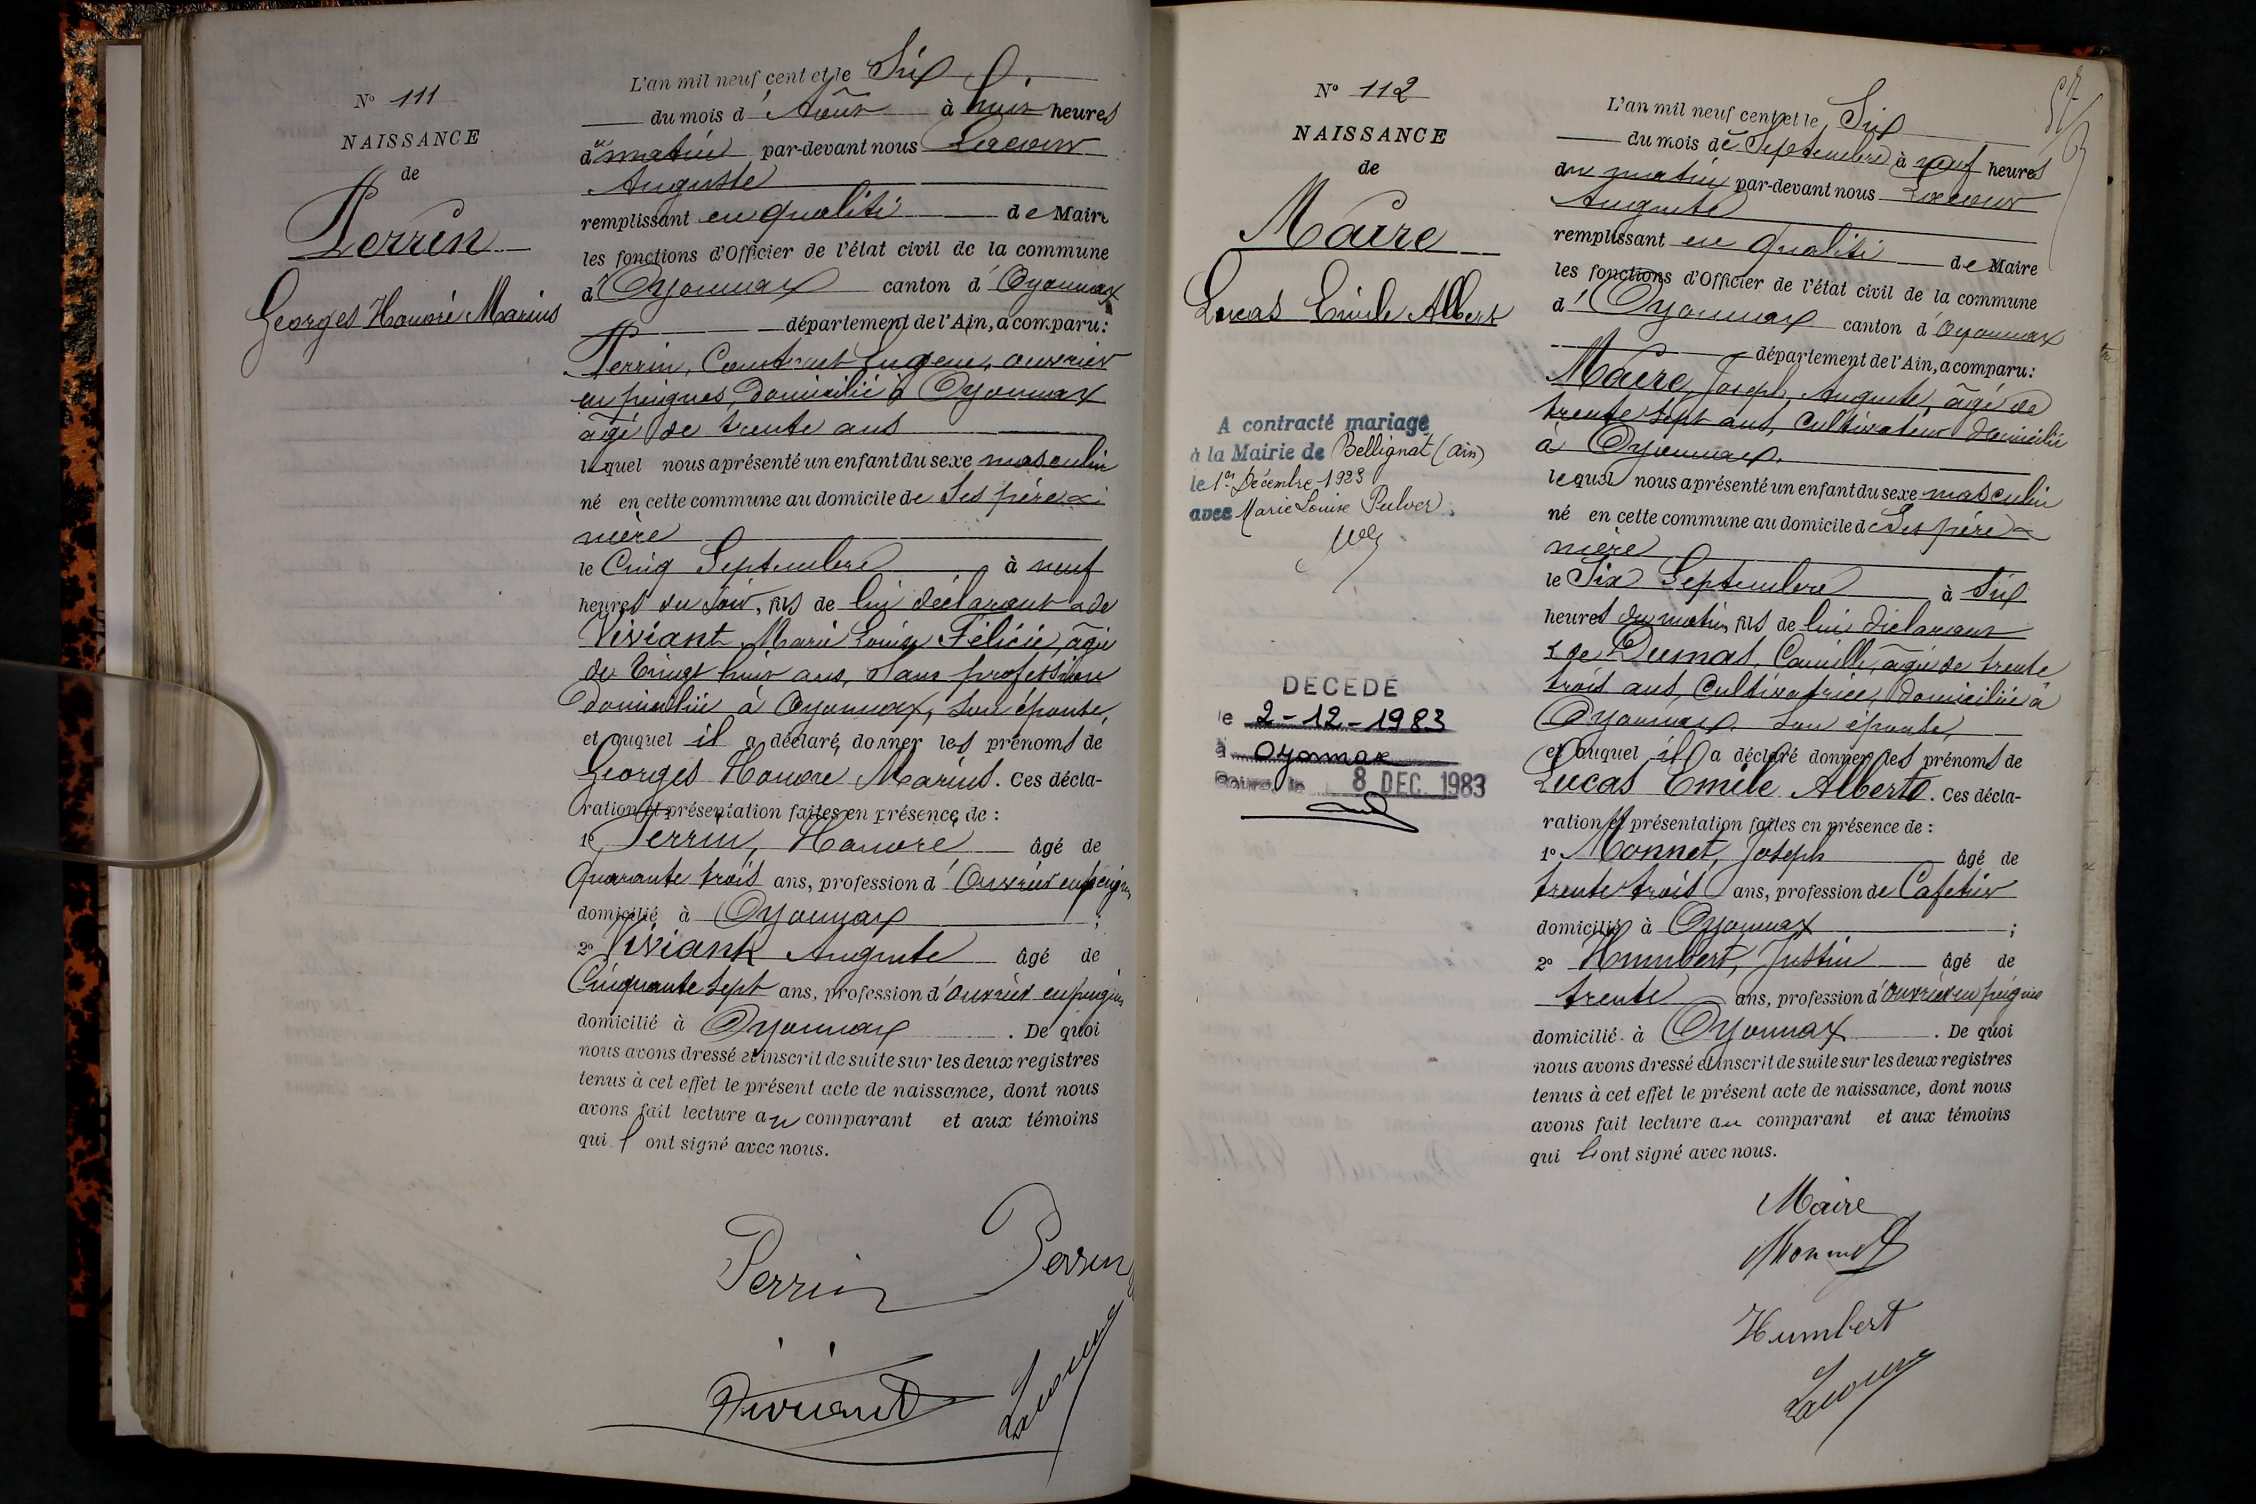 N° 111
NAISSANCE
de
Perrin
Georges Honoré Marius
L'an mil neuf cent et le Six
du mois d'Août à huit heures
du matin par-devant nous Lacour
Auguste
remplissant en qualité de Maire
les fonctions d'Officier de l'état civil de la commune
d'Oyonnax canton d'Oyonnax
département de l'Ain, a comparu:
Perrin, Constant Eugène, ouvrier
en peignes, domicilié à Oyonnax
âgé de trente ans
lequel nous a présenté un enfant du sexe masculin
né en cette commune au domicile de ses père &
mère
le Cinq Septembre à neuf
heures du soir, fils de lui déclarant & de
Viviant Marie Louise Félicie, âgée
de vingt huit ans, sans profession
domiciliée à Oyonnax, son épouse,
et auquel il a déclaré donner les prénoms de
Georges Honoré Marius. Ces décla-
ration et présentation faites en présence de :
1° Perrin, Honoré âgé de
Quarante trois ans, profession d'Ouvrier en peignes
domicilié à Oyonnax ;
2° Viviant Auguste âgé de
Cinquante sept ans, profession d'ouvrier en peignes
domicilié à Oyonnax. De quoi
nous avons dressé et inscrit de suite sur les deux registres
tenus à cet effet le présent acte de naissance, dont nous
avons fait lecture au comparant et aux témoins
qui l'ont signé avec nous.
Perrin Perrin
Viviant Lacour
N° 112
NAISSANCE
de
Maire
Lucas Emile Albert
A contracté mariage
à la Mairie de Bellignat (Ain)
le 1er Décembre 1923
avec Marie Louise Pulver.
DÉCÉDÉ
le 2-12-1983
à oyonnax
le 8 DEC. 1983
L'an mil neuf cent et le Six
du mois de Septembre à neuf heures
du matin par-devant nous Lacour
Auguste
remplissant en qualité de Maire
les fonctions d'Officier de l'état civil de la commune
d'Oyonnax canton d'Oyonnax
département de l'Ain, a comparu:
Maire, Joseph, Auguste, âgé de
trente sept ans, Cultivateur domicilié
à Oyonnax.
lequel nous a présenté un enfant du sexe masculin
né en cette commune au domicile de ses père &
mère
le Six Septembre à Six
heures du matin, fils de lui déclarant
& de Dumas, Camille, âgée de trente
trois ans, Cultivatrice, domiciliée à
Oyonnax son épouse,
et auquel il a déclaré donner les prénoms de
Lucas Emile Albert. Ces décla-
ration et présentation faites en présence de :
1° Monnet, Joseph âgé de
trente trois ans, profession de Cafetier
domicilié à Oyonnax ;
2° Humbert, Justin âgé de
trente ans, profession d'ouvrier en peignes
domicilié à Oyonnax. De quoi
nous avons dressé et inscrit de suite sur les deux registres
tenus à cet effet le présent acte de naissance, dont nous
avons fait lecture au comparant et aux témoins
qui l'ont signé avec nous.
Maire
Monnet
Humbert
Lacour